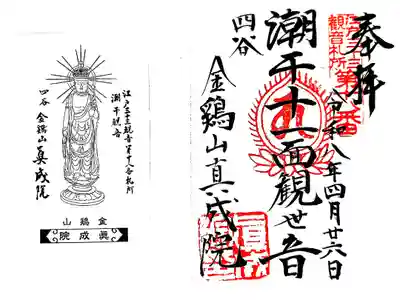 奉拝
江戸三十三
観音札所
令和八年四月廿六日
潮干十一面観世音
四谷
金鷄山真成院
江戸三十三観音第十八番札所
潮干観音
四谷 金鷄山 真成院
金鷄山
眞成院